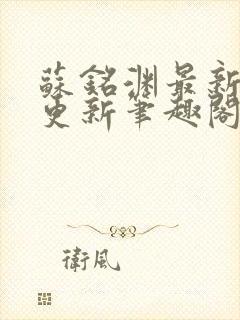 蘇銘淵最新
更新筆趣閣
衛風